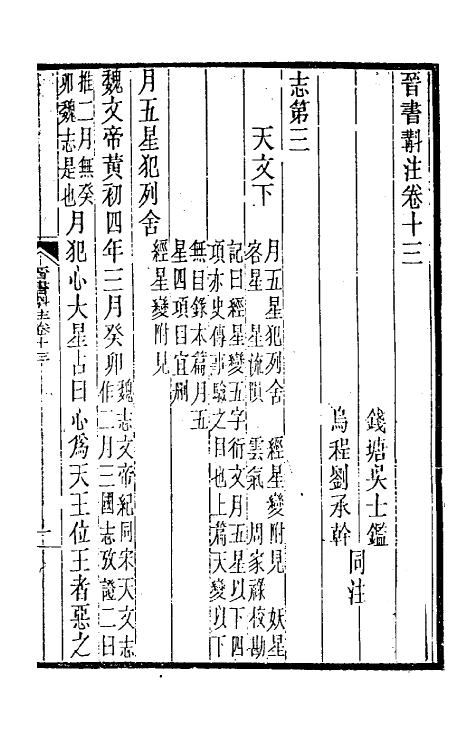 晉書斠注卷十三
錢塘吳士鑑
烏程劉承幹
同注
志第三
天文下
月五星犯列舍 經星變附見 妖星
客星 星流隕 雲氣 周家祿校勘
記曰經星變五字衍文月五星以下四
項亦史傳事驗之目也上篇天變以下
無目錄本篇月五
星四項目宜刪
經星變附見
月五星犯列舍
魏文帝黃初四年三月癸卯
魏志文帝紀同宋天文志
作二月三國志攷證二曰
推二月無癸
卯魏志是也
月犯心大星占曰心爲天王位王者惡之
晉書斠注卷十三
一